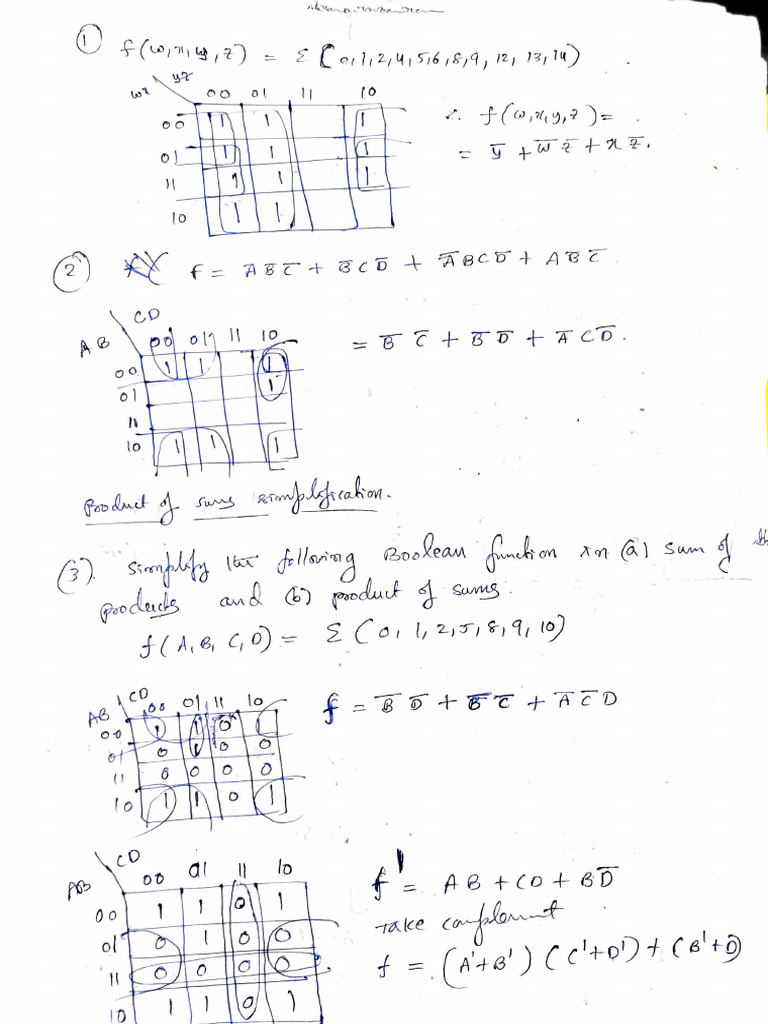 ① f(w,x,y,z) = Σ(0,1,2,4,5,6,8,9,12,13,14)
yz
wx 00 01 11 10
00 1 1 1
∴ f(w,x,y,z) =
01 1 1 1
= y̅ + w̅ z̅ + x z̅.
11 1 1 1
10 1 1
② f = A̅ B̅ C̅ + B̅ C D̅ + A̅ B C D̅ + A B̅ C̅
CD
AB 00 01 11 10
= B̅ C̅ + B̅ D̅ + A̅ C D̅.
00 1 1 1
01 1
11
10 1 1 1
Product of sums simplification.
(3). Simplify the following Boolean function in (a) sum of
products and (b) product of sums.
f(A,B,C,D) = Σ(0,1,2,5,8,9,10)
CD
AB 00 01 11 10
f = B̅ D̅ + B̅ C̅ + A̅ C̅ D
00 1 1 0 1
01 0 1 0 0
11 0 0 0 0
10 1 1 0 1
CD
AB 00 01 11 10
f' = AB + CD + BD̅
00 1 1 0 1
Take complement
01 0 1 0 0
f = (A'+B') (C'+D') + (B'+D)
11 0 0 0 0
10 1 1 0 1